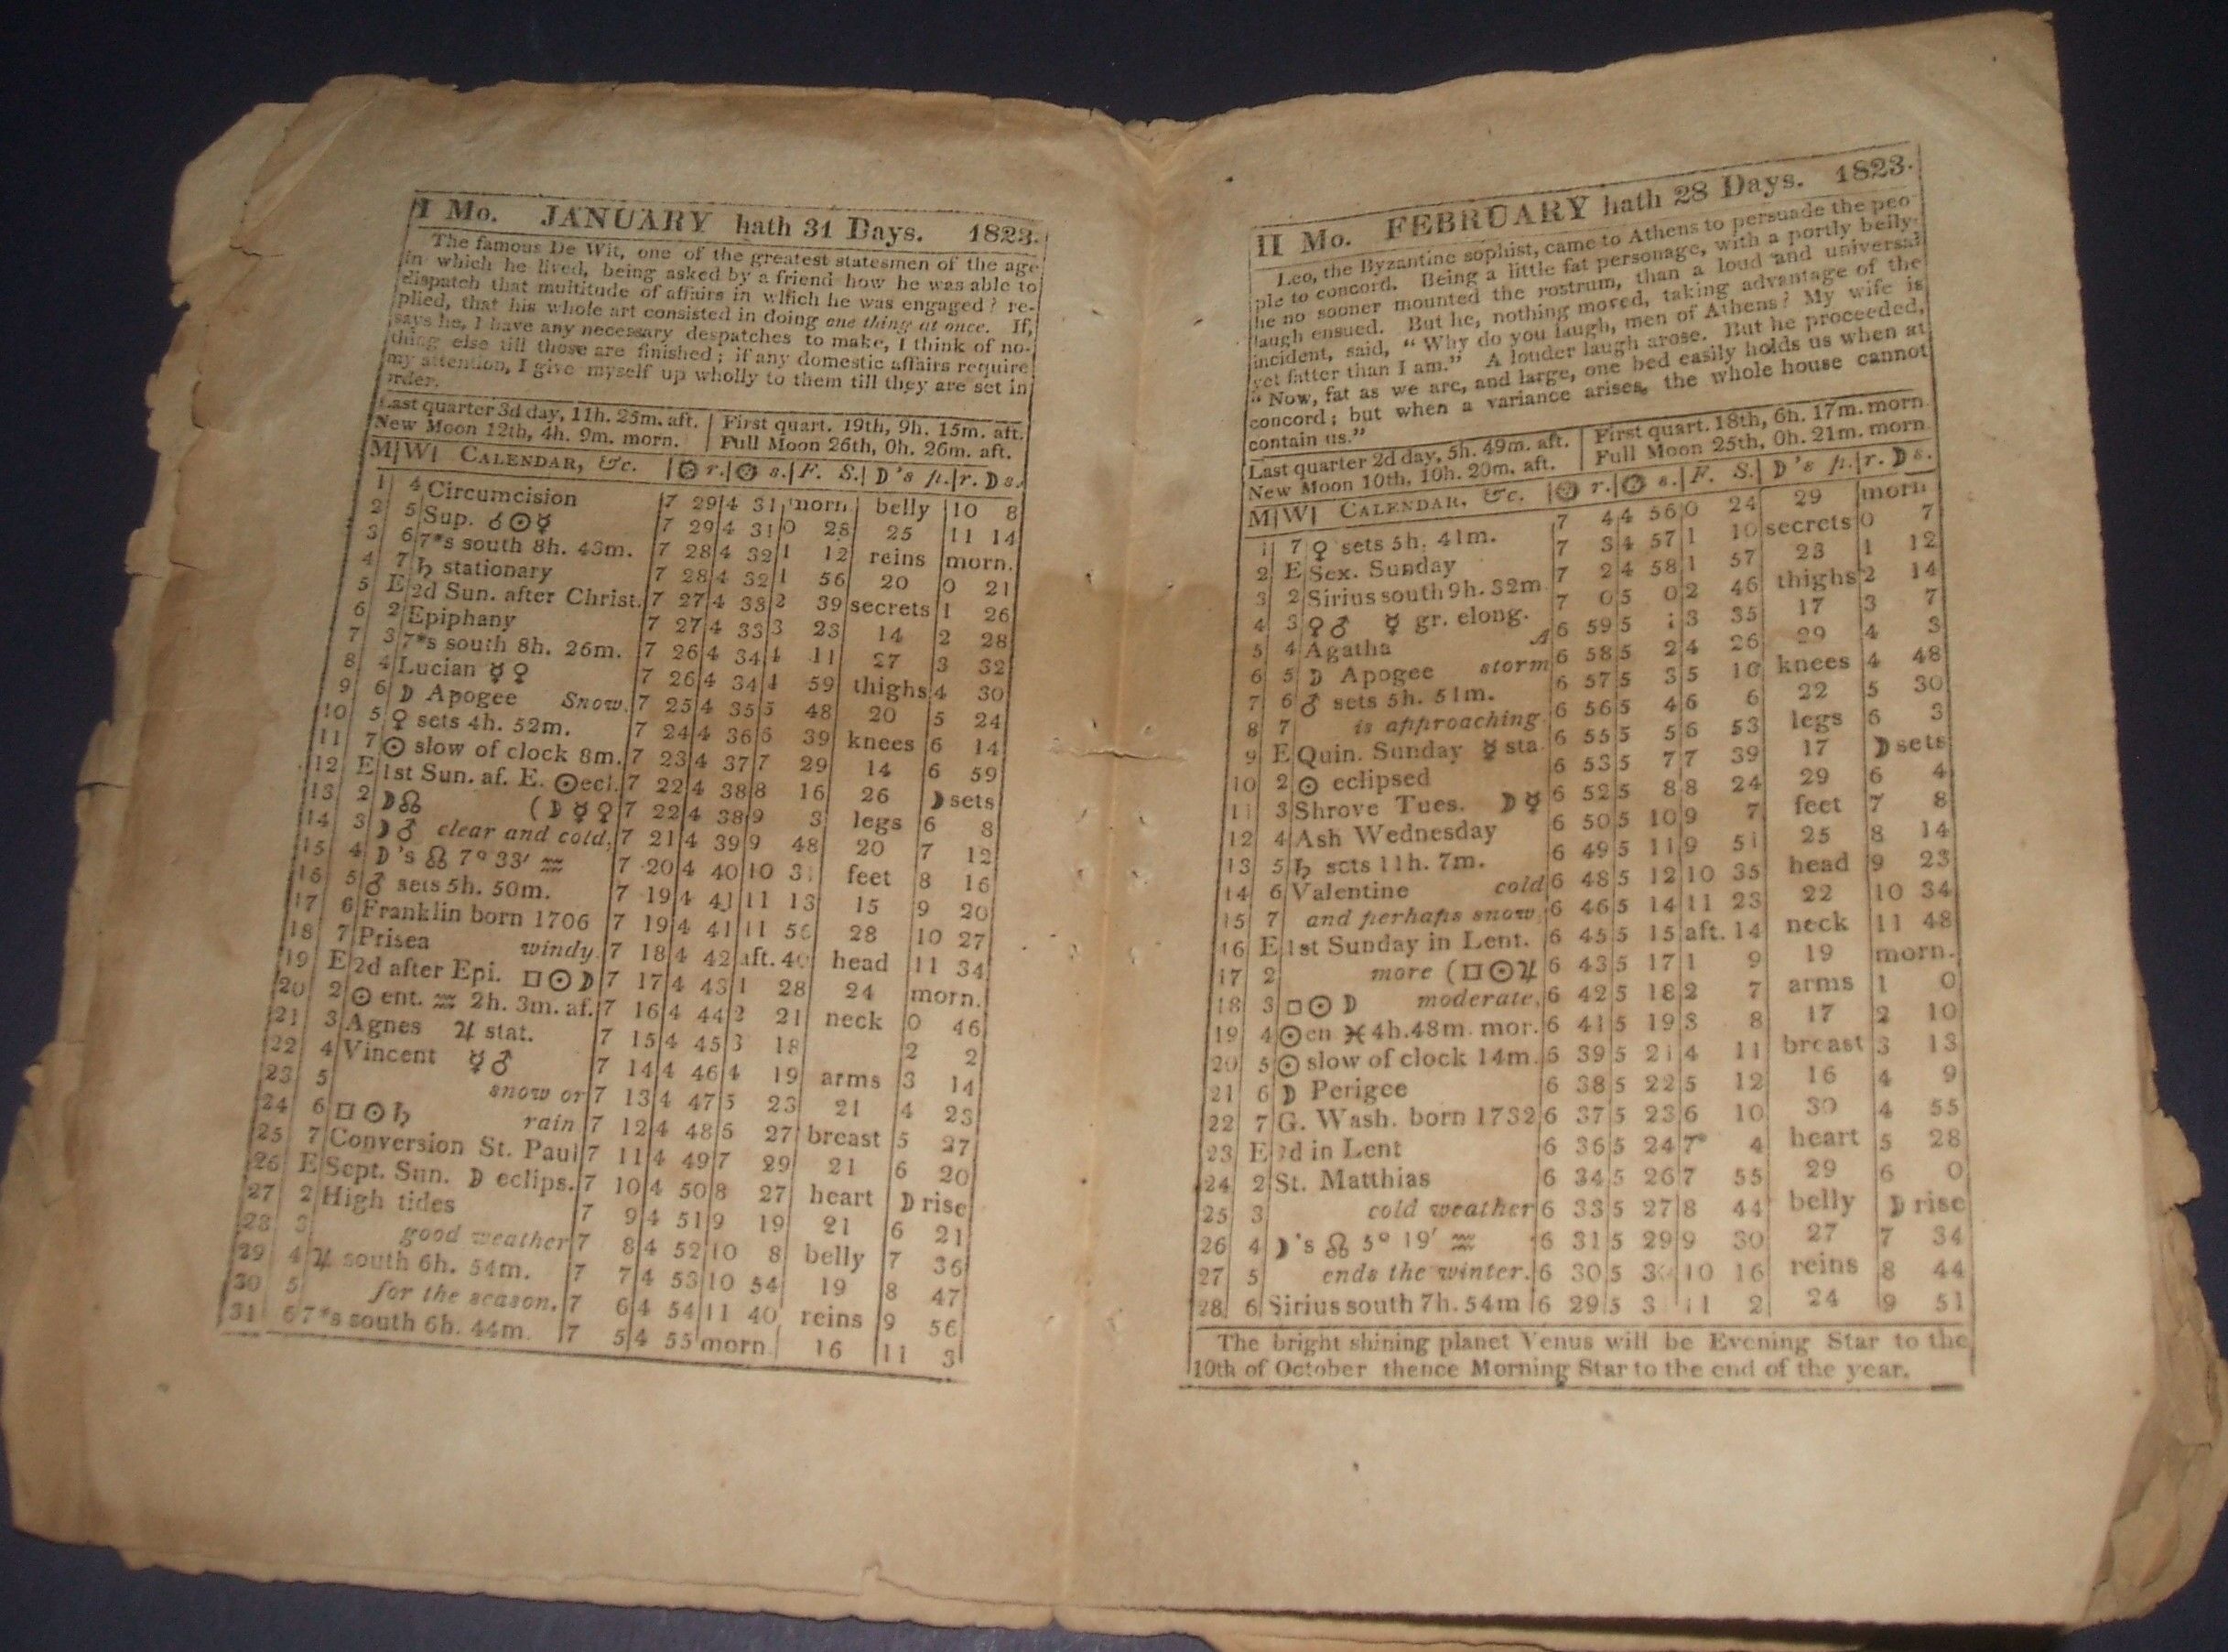 I Mo. JANUARY hath 31 Days. 1823.
The famous De Wit, one of the greatest statesmen of the age
in which he lived, being asked by a friend how he was able to
dispatch that multitude of affairs in which he was engaged? re-
plied, that his whole art consisted in doing one thing at once. If,
says he, I have any necessary despatches to make, I think of no-
thing else till those are finished; if any domestic affairs require
my attention, I give myself up wholly to them till they are set in
order.
Last quarter 3d day, 11h. 25m. aft. | First quart. 19th, 9h. 15m. aft.
New Moon 12th, 4h. 9m. morn. | Full Moon 26th, 0h. 26m. aft.
M| W| CALENDAR, &c. |☉ r.|☉ s.| F. S.| ☽'s p.|r. ☽ s.
1 4 Circumcision 7 29 4 31 morn. belly 10 8
2 5 Sup. ☌☉☿ 7 29 4 31 0 28 25 11 14
3 6 7*s south 8h. 43m. 7 28 4 32 1 12 reins morn.
4 7 ♄ stationary 7 28 4 32 1 56 20 0 21
5 E 2d Sun. after Christ. 7 27 4 33 2 39 secrets 1 26
6 2 Epiphany 7 27 4 33 3 23 14 2 28
7 3 7*s south 8h. 26m. 7 26 4 34 4 11 27 3 32
8 4 Lucian ☿ ♀ 7 26 4 34 4 59 thighs 4 30
9 6 ☽ Apogee Snow. 7 25 4 35 5 48 20 5 24
10 5 ♀ sets 4h. 52m. 7 24 4 36 6 39 knees 6 14
11 7 ☉ slow of clock 8m. 7 23 4 37 7 29 14 6 59
12 E 1st Sun. af. E. ☉ecl. 7 22 4 38 8 16 26 ☽ sets
13 2 ☽☊ (☽ ☿ ♀ 7 22 4 38 9 3 legs 6 8
14 3 ☽♂ clear and cold, 7 21 4 39 9 48 20 7 12
15 4 ☽'s ☊ 7° 33' ♒ 7 20 4 40 10 31 feet 8 16
16 5 ♂ sets 5h. 50m. 7 19 4 41 11 13 15 9 20
17 6 Franklin born 1706 7 19 4 41 11 56 28 10 27
18 7 Prisea windy. 7 18 4 42 aft. 40 head 11 34
19 E 2d after Epi. □☉☽ 7 17 4 43 1 28 24 morn.
20 2 ☉ ent. ♒ 2h. 3m. af. 7 16 4 44 2 21 neck 0 46
21 3 Agnes ♃ stat. 7 15 4 45 3 18 2 2
22 4 Vincent ☿♂ 7 14 4 46 4 19 arms 3 14
23 5 snow or 7 13 4 47 5 23 21 4 23
24 6 □☉♄ rain 7 12 4 48 6 27 breast 5 27
25 7 Conversion St. Paul 7 11 4 49 7 29 21 6 20
26 E Sept. Sun. ☽ eclips. 7 10 4 50 8 27 heart ☽ rise
27 2 High tides 7 9 4 51 9 19 21 6 21
28 3 good weather 7 8 4 52 10 8 belly 7 36
29 4 ♃ south 6h. 54m. 7 7 4 53 10 54 19 8 47
30 5 for the season. 7 6 4 54 11 40 reins 9 56
31 6 7*s south 6h. 44m. 7 5 4 55 morn. 16 11 3
II Mo. FEBRUARY hath 28 Days. 1823.
Leo, the Byzantine sophist, came to Athens to persuade the peo
ple to concord. Being a little fat personage, with a portly belly,
he no sooner mounted the rostrum, than a loud and universal
laugh ensued. But he, nothing moved, taking advantage of the
incident, said, “ Why do you laugh, men of Athens? My wife is
yet fatter than I am.” A louder laugh arose. But he proceeded,
“ Now, fat as we are, and large, one bed easily holds us when at
concord; but when a variance arises, the whole house cannot
contain us.”
Last quarter 2d day, 5h. 49m. aft. | First quart. 18th, 6h. 17m. morn
New Moon 10th, 10h. 20m. aft. | Full Moon 25th, 0h. 21m. morn
M| W| CALENDAR, &c. |☉ r.|☉ s.| F. S.| ☽'s p.|r. ☽ s.
1 7 ♀ sets 5h. 41m. 7 4 4 56 0 24 29 morn
2 E Sex. Sunday 7 3 4 57 1 10 secrets 0 7
3 2 Sirius south 9h. 32m 7 2 4 58 1 57 23 1 12
4 3 ♀♂ ☿ gr. elong. 7 0 5 0 2 46 thighs 2 14
5 4 Agatha A 6 59 5 1 3 35 17 3 7
6 5 ☽ Apogee storm 6 58 5 2 4 26 29 4 3
7 6 ♂ sets 5h. 51m. 6 57 5 3 5 16 knees 4 48
8 7 is approaching 6 56 5 4 6 6 22 5 30
9 E Quin. Sunday ☿ sta. 6 55 5 5 6 53 legs 6 3
10 2 ☉ eclipsed 6 53 5 7 7 39 17 ☽ sets
11 3 Shrove Tues. ☽☿ 6 52 5 8 8 24 29 6 4
12 4 Ash Wednesday 6 50 5 10 9 7 feet 7 8
13 5 ♄ sets 11h. 7m. 6 49 5 11 9 51 25 8 14
14 6 Valentine cold 6 48 5 12 10 35 head 9 23
15 7 and perhaps snow, 6 46 5 14 11 23 22 10 34
16 E 1st Sunday in Lent. 6 45 5 15 aft. 14 neck 11 48
17 2 more (□☉♃ 6 43 5 17 1 9 19 morn.
18 3 □☉☽ moderate, 6 42 5 18 2 7 arms 1 0
19 4 ☉en ♓ 4h.48m. mor. 6 41 5 19 3 8 17 2 10
20 5 ☉ slow of clock 14m. 6 39 5 21 4 11 breast 3 13
21 6 ☽ Perigee 6 38 5 22 5 12 16 4 9
22 7 G. Wash. born 1732 6 37 5 23 6 10 30 4 55
23 E 2d in Lent 6 36 5 24 7 4 heart 5 28
24 2 St. Matthias 6 34 5 26 7 55 29 6 0
25 3 cold weather 6 33 5 27 8 44 belly ☽ rise
26 4 ☽'s ☊ 5° 19' ♒ 6 31 5 29 9 30 27 7 34
27 5 ends the winter. 6 30 5 10 16 reins 8 44
28 6 Sirius south 7h. 54m 6 29 5 11 2 24 9 51
The bright shining planet Venus will be Evening Star to the
10th of October thence Morning Star to the end of the year.